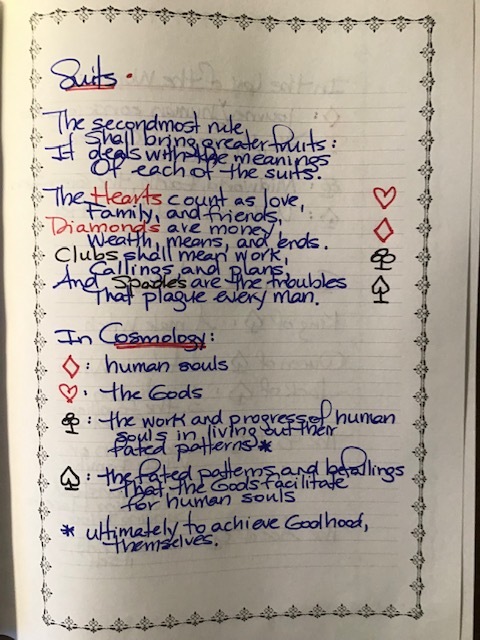 Suits.
The secondmost rule
Shall bring greater fruits:
It deals with the meanings
Of each of the suits.
The Hearts count as love,
Family, and friends,
Diamonds are money,
Wealth, means, and ends.
Clubs shall mean work,
Callings and plans,
And Spades are the troubles
That plague every man.
In Cosmology:
♦: human souls
♥: the Gods
♣: the work and progress of human
souls in living out their
fated patterns*
♠: the fated patterns and befallings
That the Gods facilitate
for human souls
* ultimately to achieve Godhood,
themselves.